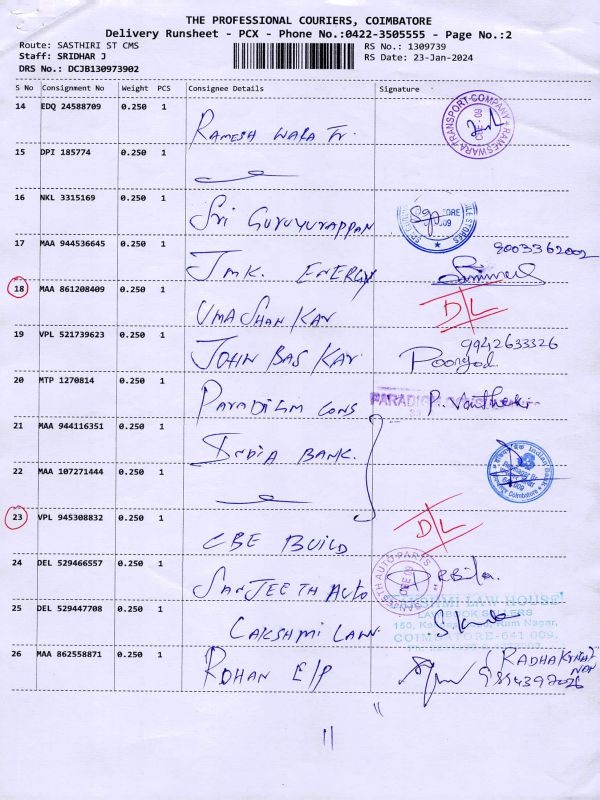 THE PROFESSIONAL COURIERS, COIMBATORE
Delivery Runsheet - PCX - Phone No.:0422-3505555 - Page No.:2
Route: SASTHIRI ST CMS RS No.: 1309739
Staff: SRIDHAR J RS Date: 23-Jan-2024
DRS No.: DCJB130973902
S No Consignment No Weight PCS Consignee Details Signature
14 EDQ 24588709 0.250 1
RAMESH WARA Tr. TRANSPORT COMPANY RAMESWARA
15 DPI 185774 0.250 1
16 NKL 3315169 0.250 1
Sri GURUVURAPPAN
17 MAA 944536645 0.250 1 9003362002
JMK. ENERGY
18 MAA 861208409 0.250 1 D/L
UMA SHAN KAR
19 VPL 521739623 0.250 1 9942633326
JOHN BAS KAR
20 MTP 1270814 0.250 1
PARADIGM CONS PARADIG
21 MAA 944116351 0.250 1
INDIA BANK.
22 MAA 107271444 0.250 1
23 VPL 945308832 0.250 1 D/L
CBE BUILD
24 DEL 529466557 0.250 1
SANJEETH AUTO AUTO PARTS
25 DEL 529447708 0.250 1 LAKSHMI LAW HOUSE
LAKSHMI LAW LAW BOOK SELLERS
COIMBATORE-641 009.
26 MAA 862558871 0.250 1
ROHAN E/P
11